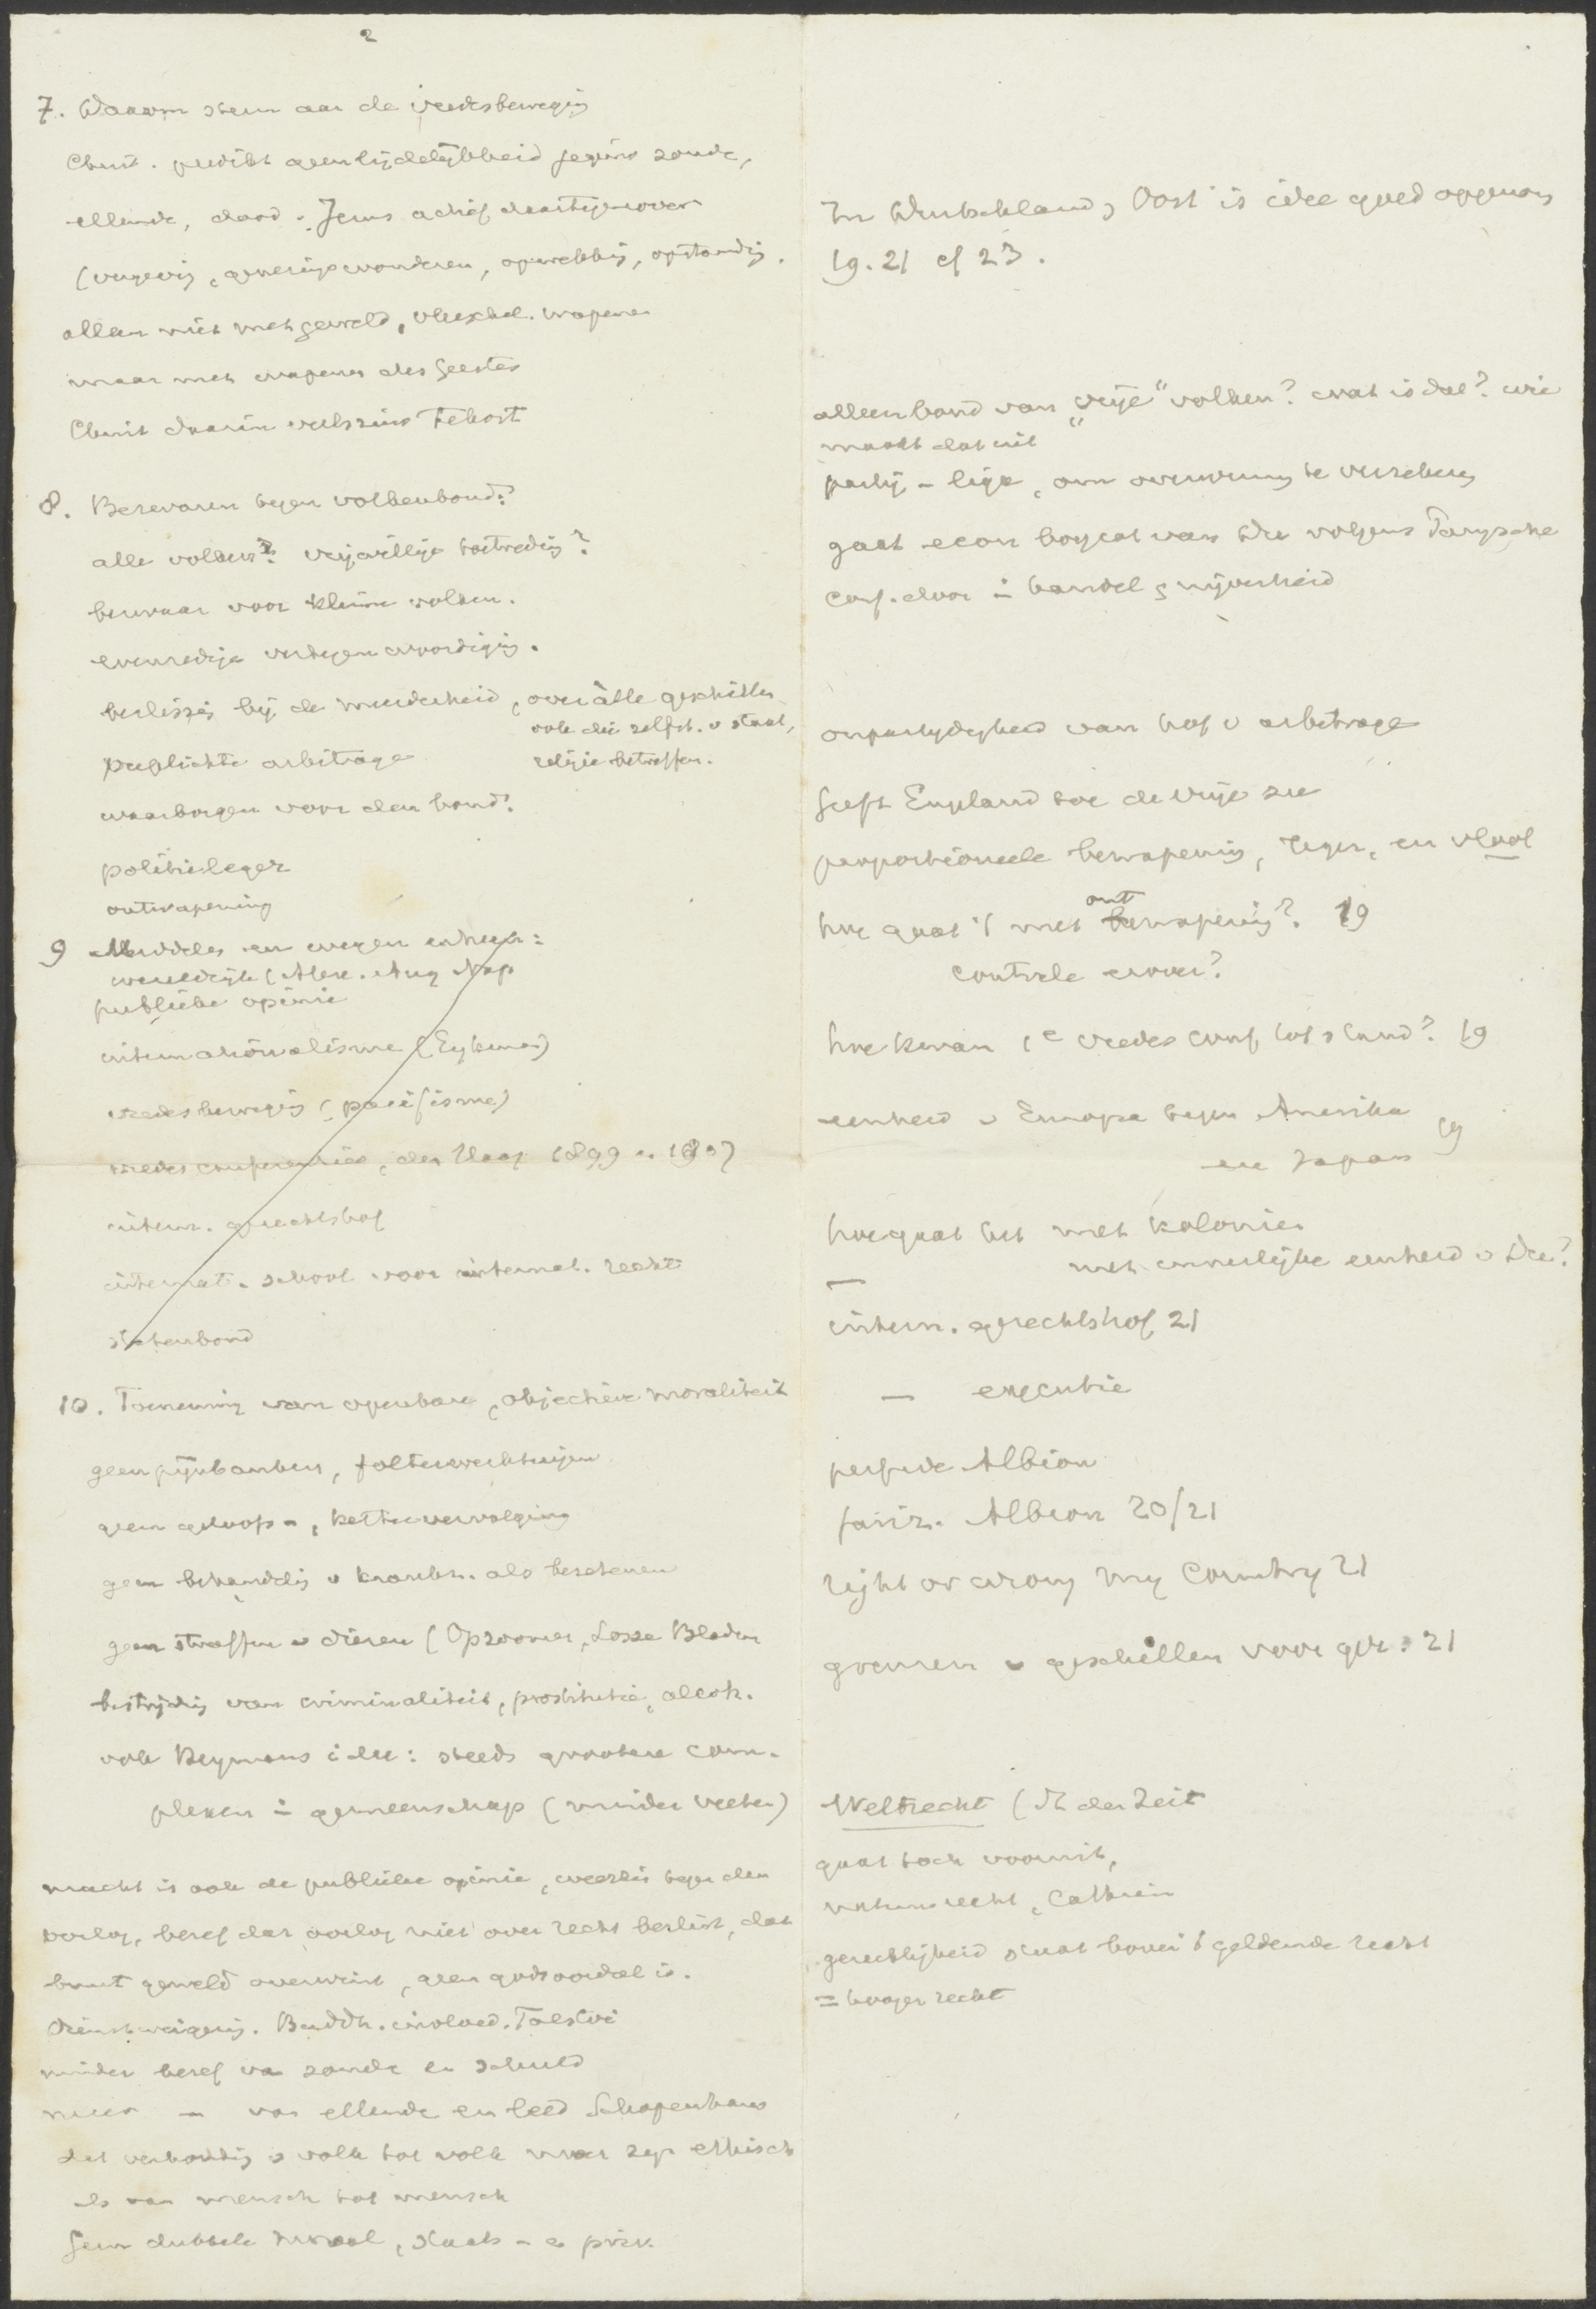 2
7. Waarom steun aan de vredesbeweging
Christ. predikt geen lijdelijkheid jegens zonde,
ellende, dood. Jezus actief daartegenover
(vergeving, genezingswonderen, opwekking, opstanding.
alleen niet met geweld, vleeschel. wapenen
maar met wapenen des Geestes
Christ daarin veelszins tekort
8. Bezwaren tegen volkenbond?
alle volken? vrijwillige toetreding?
bezwaar voor kleine volken.
evenredige vertegenwoordiging.
beslissing bij de meerderheid, over alle geschillen
ook die zelfst. v staat,
religie betreffen.
verplichte arbitrage
waarborgen voor den bond?
politieleger
ontwapening
9 Middelen en wegen ertoe:
wereldrijk (Alex. Aug Nap
publieke opinie
internationalisme (Eykman)
vredesbeweging (pacifisme)
vredesconferentie, den Haag 1899 en 1907
intern. gerechtshof
internat. school voor internat. recht
Statenbond
10. Toeneming van openbare, objectieve moraliteit
geen pijnbanken, folterwerktuigen
geen geloofs-, kettervervolging
geen behandeling v krankz. als bezetenen
geen straffen v dieren (Opzoomer, Losse Bladen
bestrijding van criminaliteit, prostitutie, alcoh.
ook Heymans idee: steeds grootere com-
plexen in gemeenschap (minder veeten)
macht is ook de publieke opinie, weerzin tegen den
oorlog, besef dat oorlog niet over recht beslist, dat
bruut geweld overwint, geen godsoordeel is.
Dienstweigering. Buddh. invloed. Tolstoi
minder besef van zonde en schuld
meer - van ellende en leed Schopenhauer
dat verhouding v volk tot volk moet zijn ethisch
als van mensch tot mensch
Geen dubbele moraal, staats- en priv.
In Deutschland, Oost is idee goed opgenomen
19. 21 cf 23.
alleen bond van „vrije“ volken? wat is dat? wie
maakt dat uit
partij-liga, om overwinning te verzekeren
gaat econ boycot van Du volgens Parijsche
conf. door in handel & nijverheid
onpartijdigheid van hof v arbitrage
Geeft Engeland toe de vrije zee
proportioneele bewapening, leger, en vloot
hoe gaat 't met ontwapening? 19
controle erover?
hoe kwam 1e vredesconf tot stand? 19
eenheid v Europa tegen Amerika
en Japan 19
hoe gaat het met kolonien
met innerlijke eenheid v Du?
—
intern. gerechtshof 21
— executie
perfide Albion
fariz. Albion 20/21
right or wrong my Country 21
grenzen v geschillen voor ger. 21
Weltrecht (In der Zeit
gaat toch vooruit,
natuurrecht, Cathrein
gerechtigheid staat boven 't geldende recht
= hooger recht